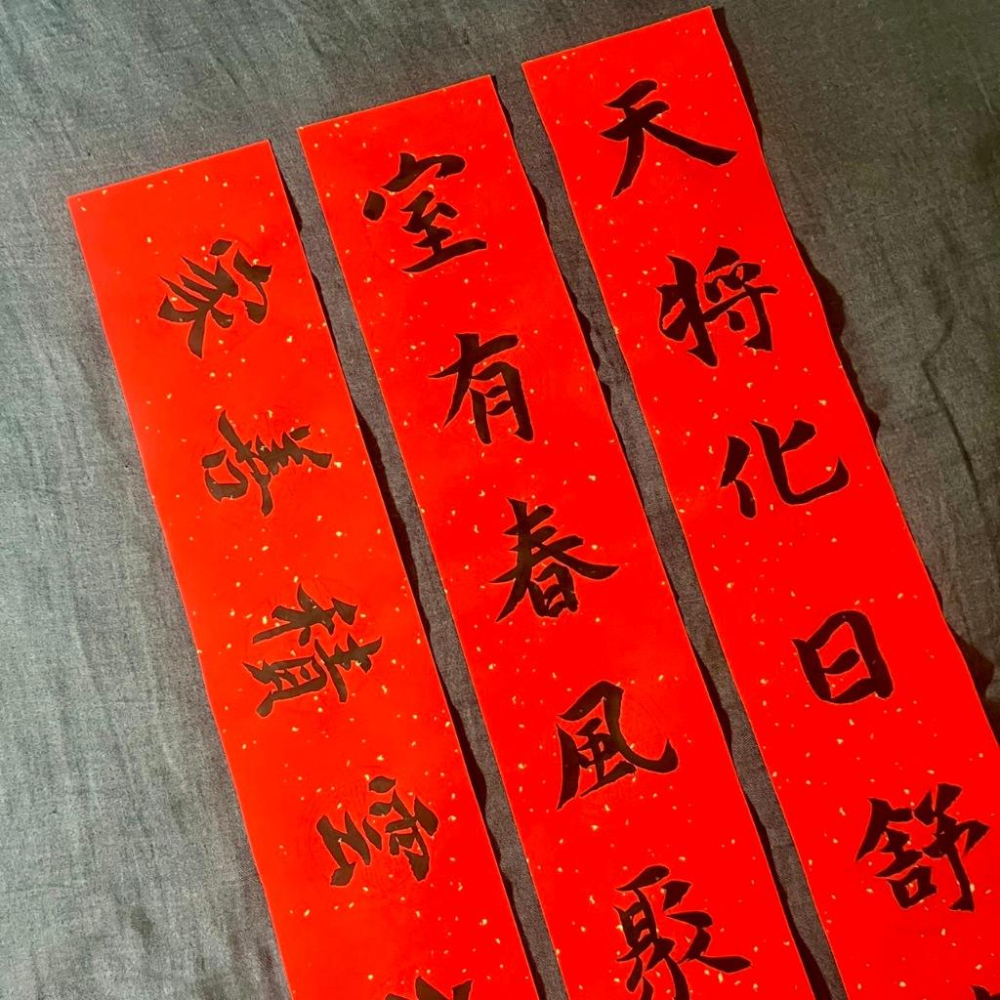 天将化日舒
室有春風聚
雲積善家